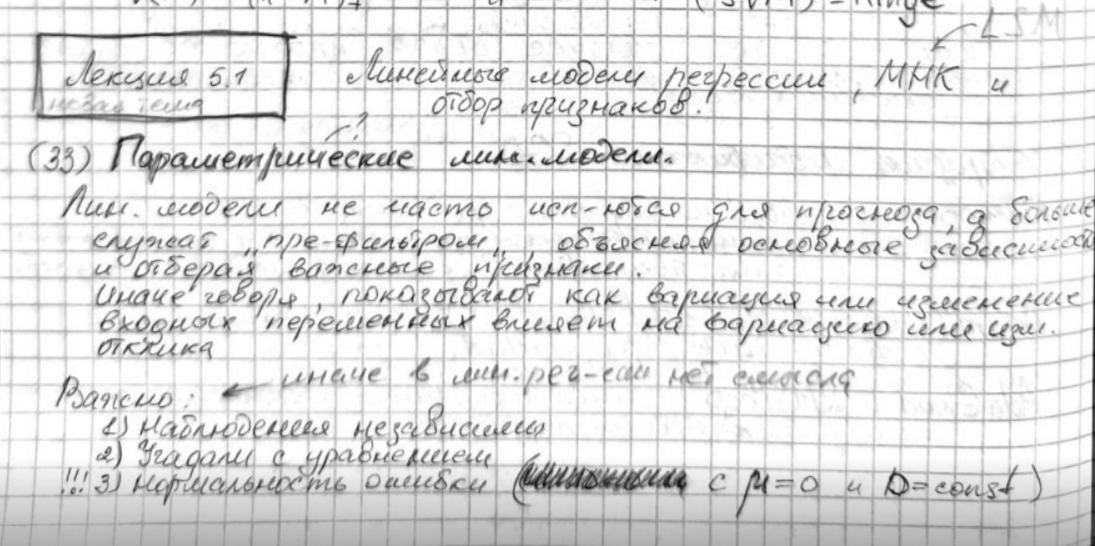 (SVM) - hinge
MSL
Лекция 5.1
новая тема
Линейные модели регрессии, МНК и
отбор признаков.
?
(33) Параметрические лин. модели.
Лин. модели не часто исп-ются для прогноза, а больше
служат "пре-фильтром", объясняя основные зависимости
и отберая важные признаки.
Иначе говоря, показывают как вариация или изменение
входных переменных влияет на вариацию или изм.
отклика
Важно: ← иначе в лин. рег-сии нет смысла
1) Наблюдения независимы
2) Угадали с уравнением
!!! 3) Нормальность ошибки ( с μ=0 и D=const)